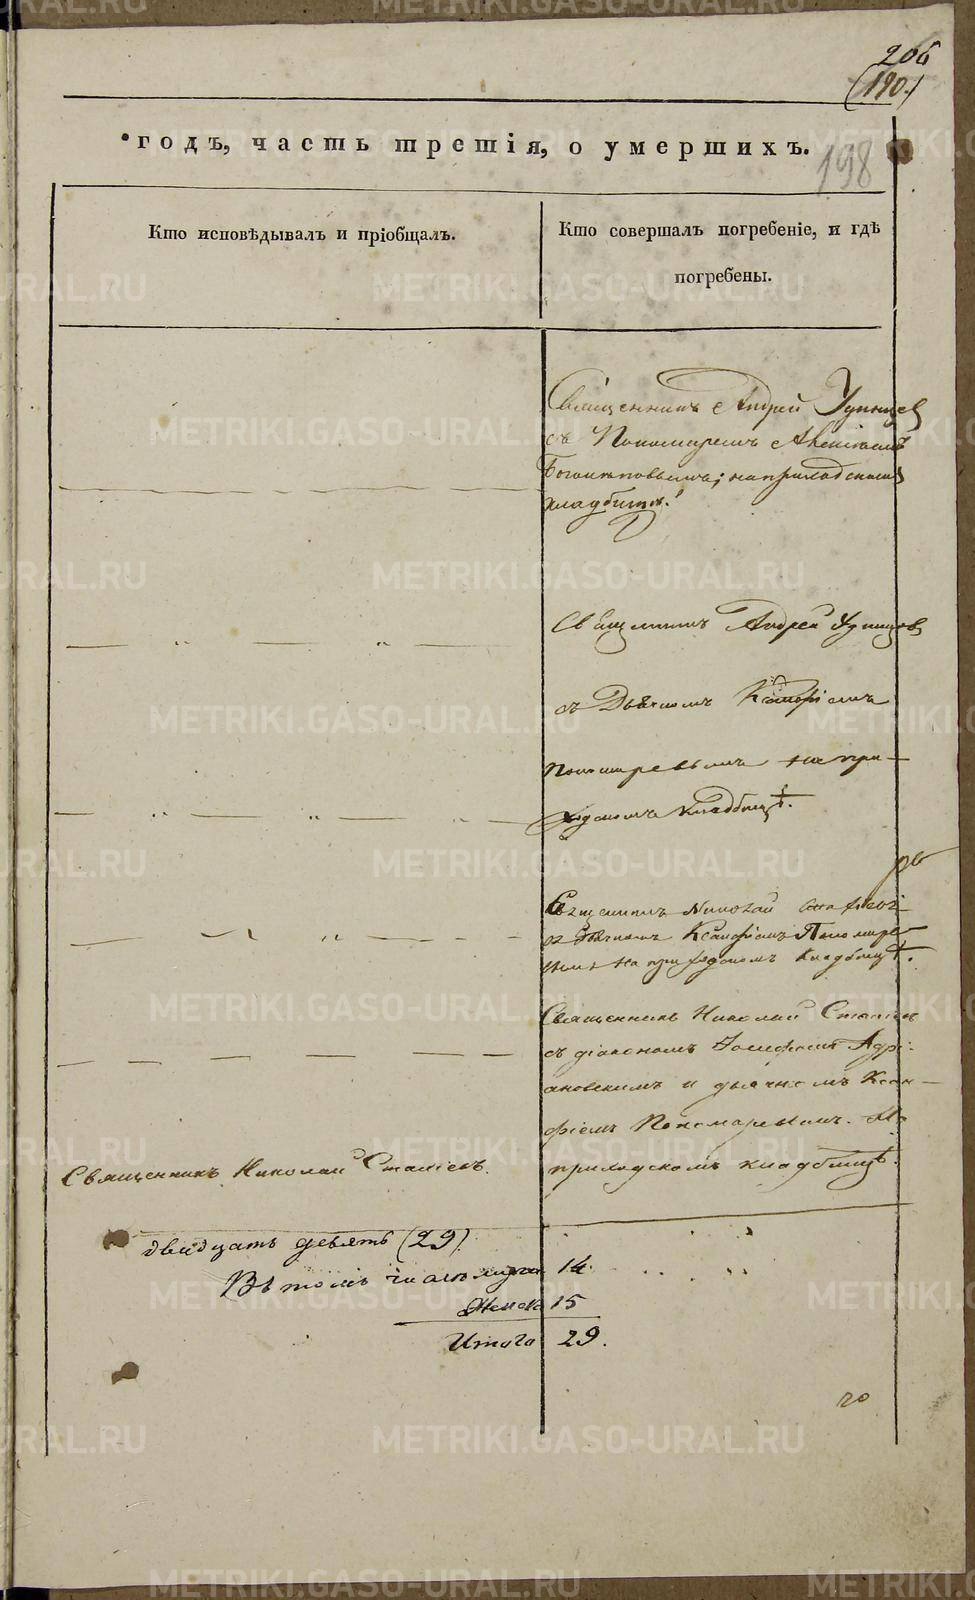 206
(190.)
годъ, часть третія, о умершихъ.
198
Кто исповѣдывалъ и пріобщалъ.
Кто совершалъ погребеніе, и гдѣ
погребены.
Священникъ Андрей
съ Пономаремъ
на приходскомъ
кладбищѣ.
Священникъ Андрей
съ Дьячкомъ Ксанфіемъ
Пономаревымъ на при-
ходскомъ кладбищѣ.
Священникъ Николай
съ дьячкомъ Ксанфіемъ Пономаре-
вымъ на приходскомъ кладбищѣ.
Священникъ Николай
съ діакономъ Іосифомъ Адрі-
ановскимъ и дьячкомъ Ксан-
фіемъ Пономаревымъ. На
приходскомъ кладбищѣ.
Священникъ Николай
двадцать девять (29).
Въ томъ числѣ 14.
Женска 15
Итого 29.
METRIKI.GASO-URAL.RU